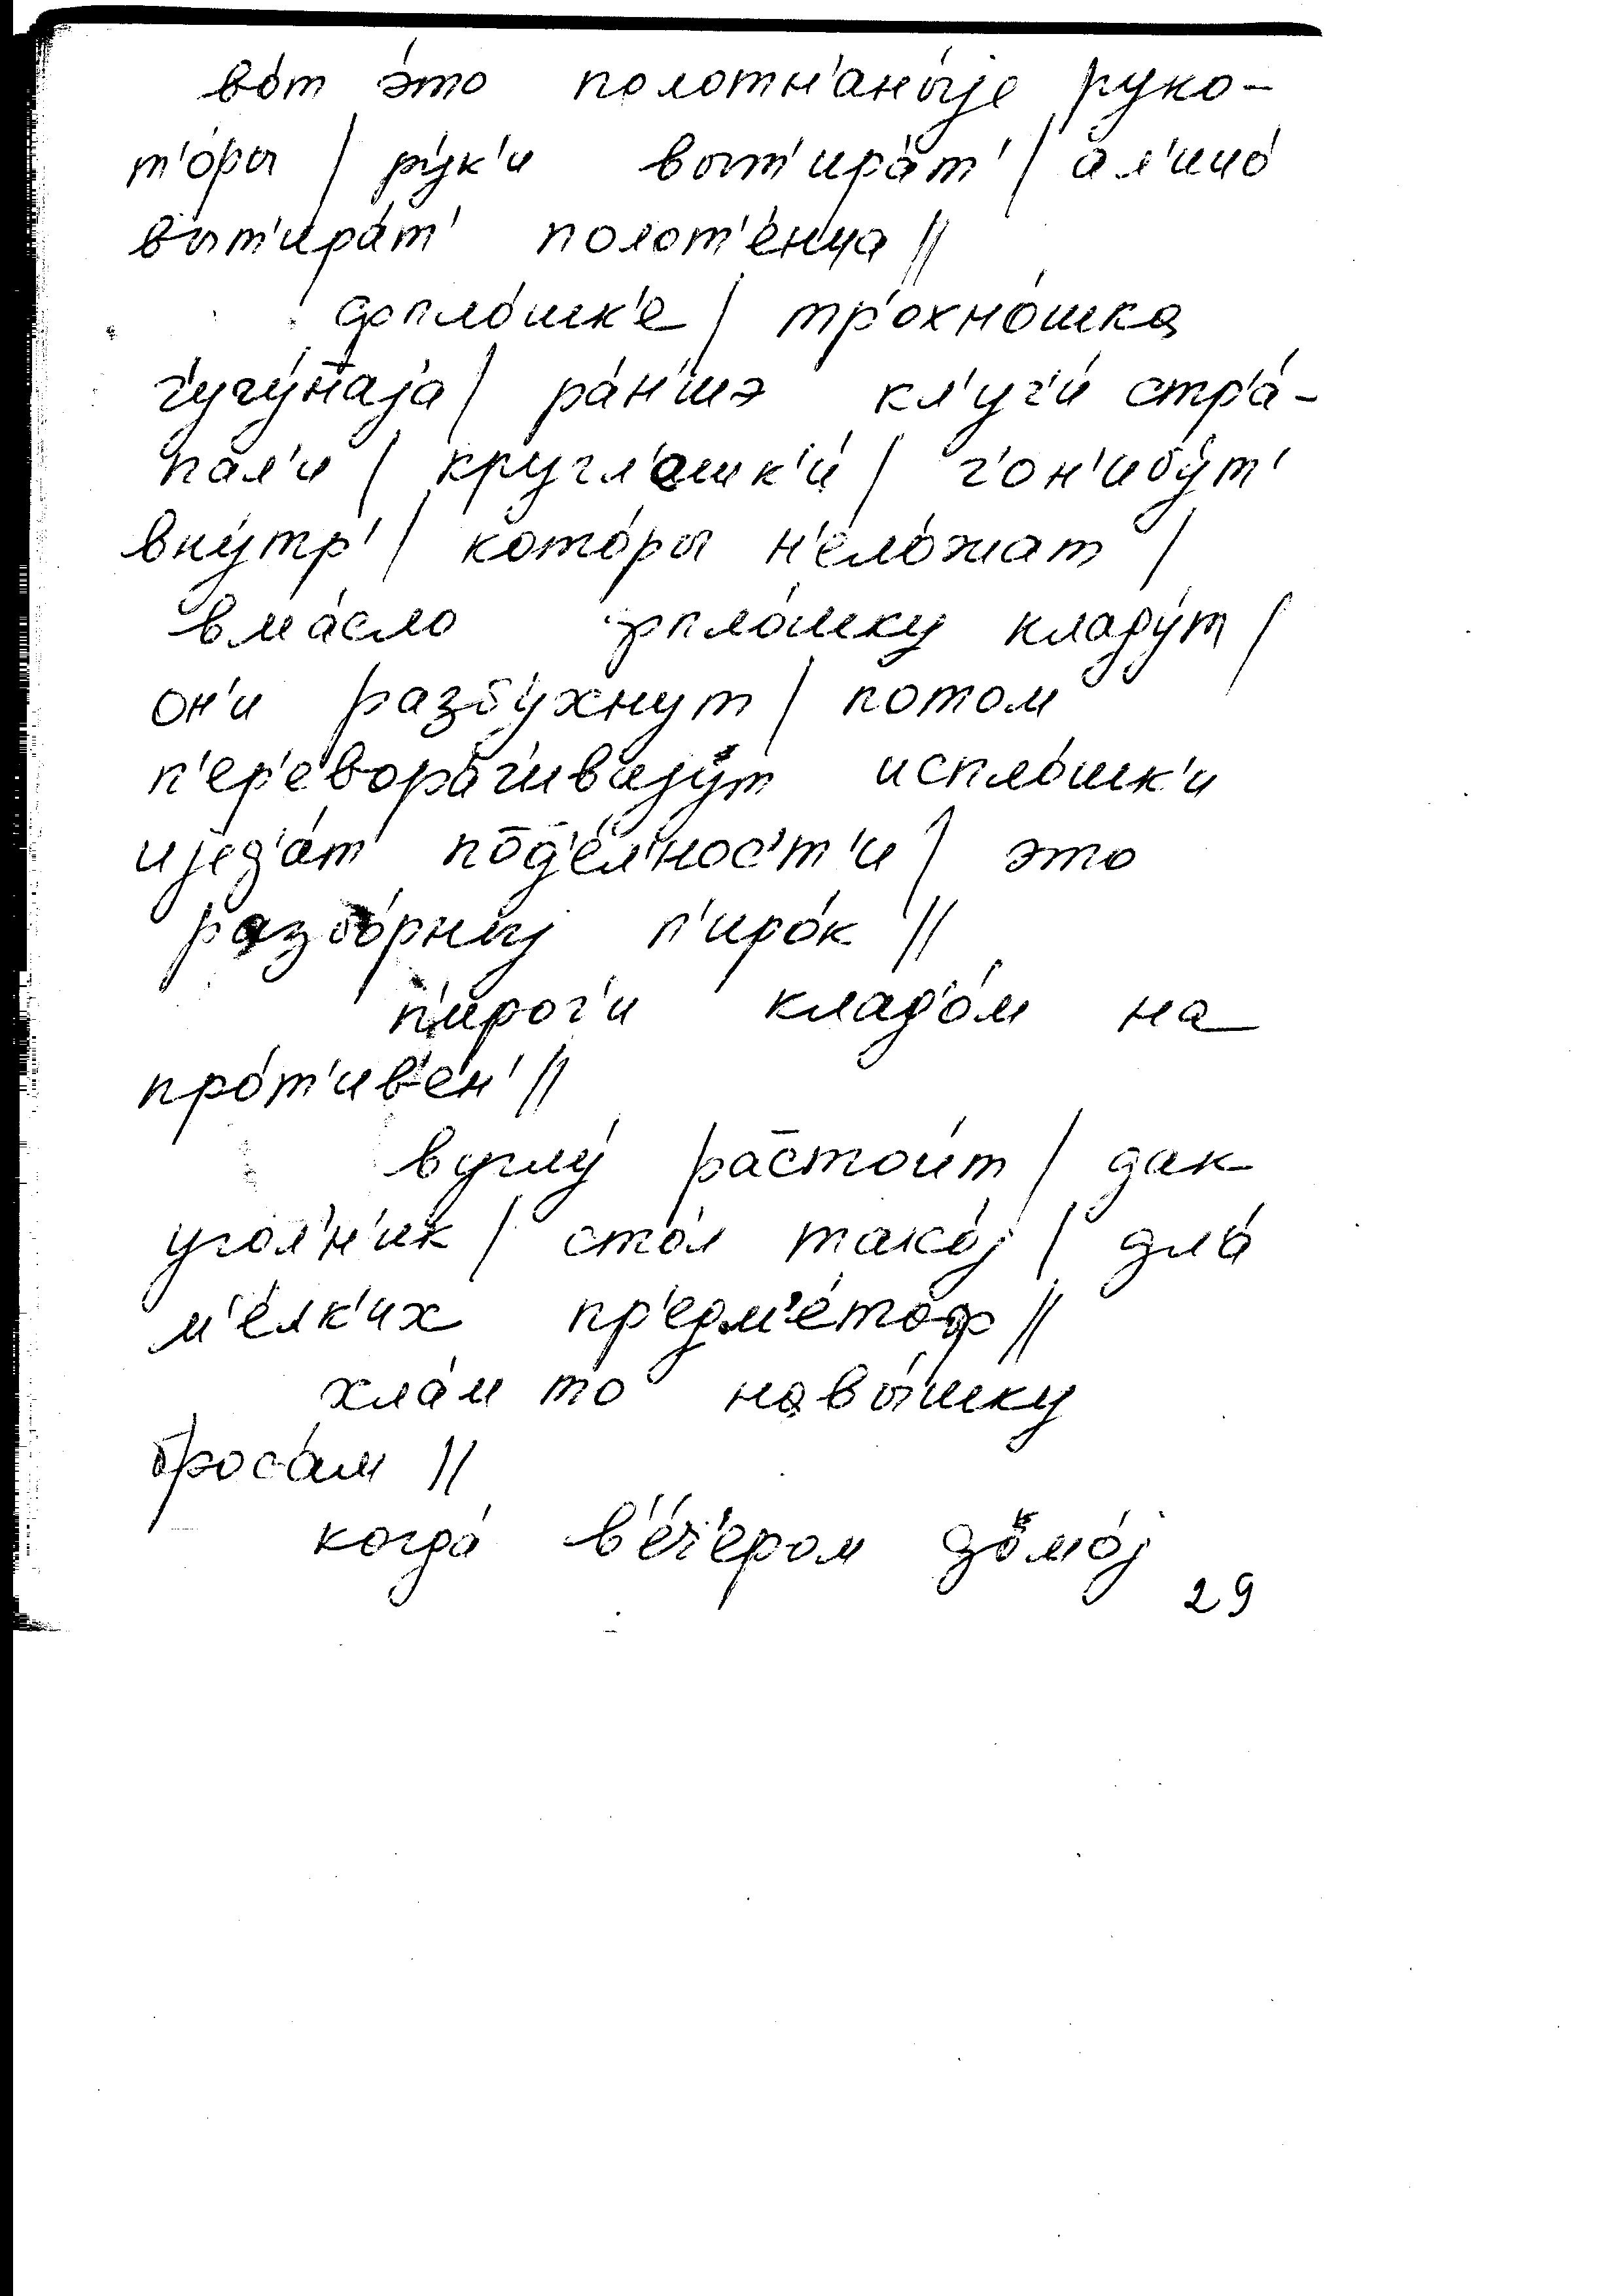 во́т э́то полотн'аны́је руко-
т'о́ры / ру́к'и выт'ира́т' / а л'ицо́
выт'ира́т' полот'е́нца //
фпло́шк'е / тр'охно́шка
ч'угу́н̄аја / ра́н'шэ кл'уч'и́ стр'а́-
пал'и / кругл'ешк'и́ / ч'он'ибу́т'
вну́тр' / кото́ры н'ело́жат /
вма́сло фпло́шку кладу́т /
он'и разбу́хнут / потом
п'ер'евора́ч'ивају́т испло́шк'и
ијед'а́т по̄д'е́л'нос'т'и / это
разбо́рныј п'иро́к //
п'ирог'и клад'о́м на
про́т'ив'ен' //
вуглу́ рас̄тои́т / дак
угол'н'ик / сто́л тако́ј / дл'а́
м'е́лк'их пр'едм'е́тоф //
хла́м то навы́шку
броса́м //
когда́ в'е́ч'ером домо́ј
29